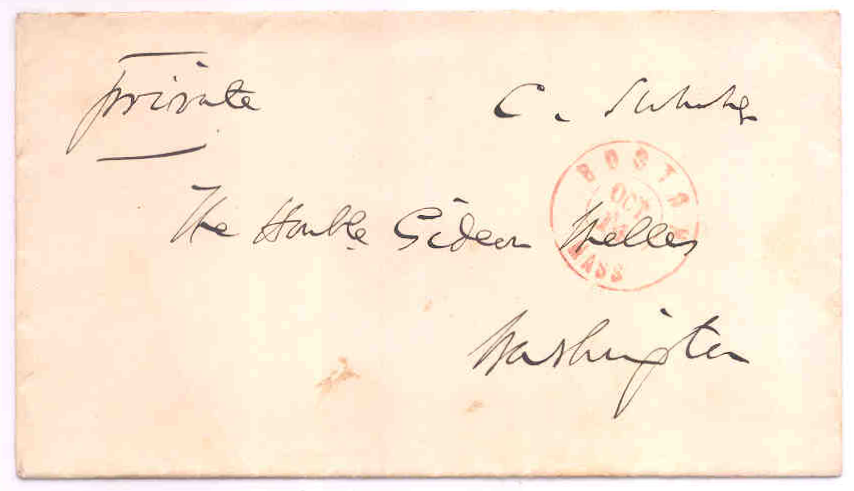 Private
C.
BOSTON
OCT
MASS
The Honble Gideon Welles
Washington